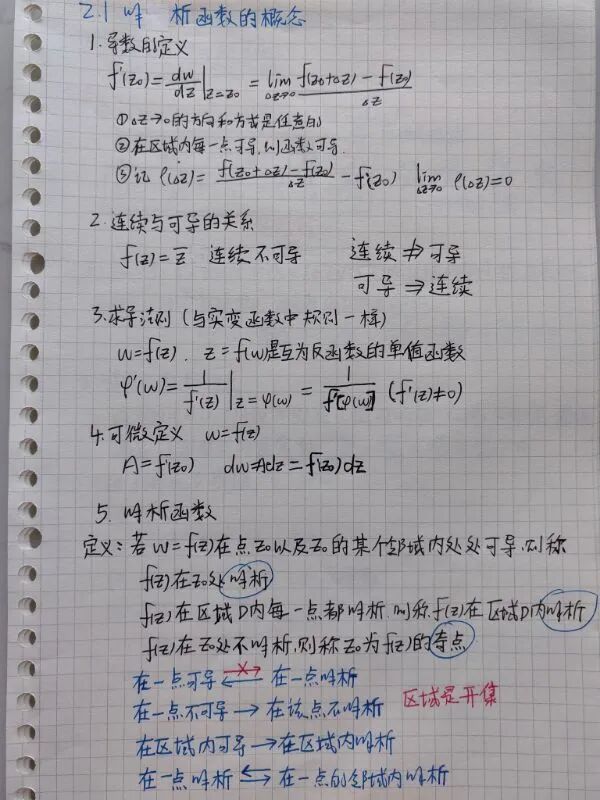 2.1 解析函数的概念
1.导数的定义
f'(z₀)=dw/dz|z=z₀ = lim Δz→0 (f(z₀+Δz)-f(z₀))/Δz
①Δz→0的方向和方式是任意的
②在区域内每一点可导,则函数可导.
③记 ρ(Δz)= (f(z₀+Δz)-f(z₀))/Δz - f'(z₀) lim Δz→0 ρ(Δz)=0
2.连续与可导的关系
f(z)=z̅ 连续不可导 连续⇏可导
可导⇒连续
3.求导法则(与实变函数中规则一样)
w=f(z). z=f(w)是互为反函数的单值函数
φ'(w)= 1/f'(z) |z=φ(w) = 1/f'[φ(w)] (f'(z)≠0)
4.可微定义 w=f(z)
A=f'(z₀) dw=Adz=f'(z₀)dz
5.解析函数
定义:若w=f(z)在点z₀以及z₀的某个邻域内处处可导,则称
f(z)在z₀处解析
f(z)在区域D内每一点都解析.则称f(z)在区域D内解析
f(z)在z₀处不解析,则称z₀为f(z)的奇点
在一点可导 ⇄ 在一点解析
在一点不可导→在该点不解析 区域是开集
在区域内可导→在区域内解析
在一点解析⇆在一点的邻域内解析